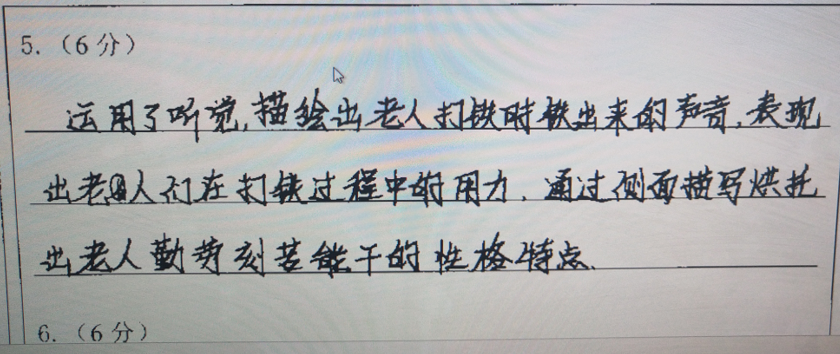 5.（6分）
运用了听觉,描绘出老人打铁时铁出来的声音,表现
出老人们在打铁过程中的用力,通过侧面描写烘托
出老人勤劳刻苦能干的性格特点.
6.（6分）